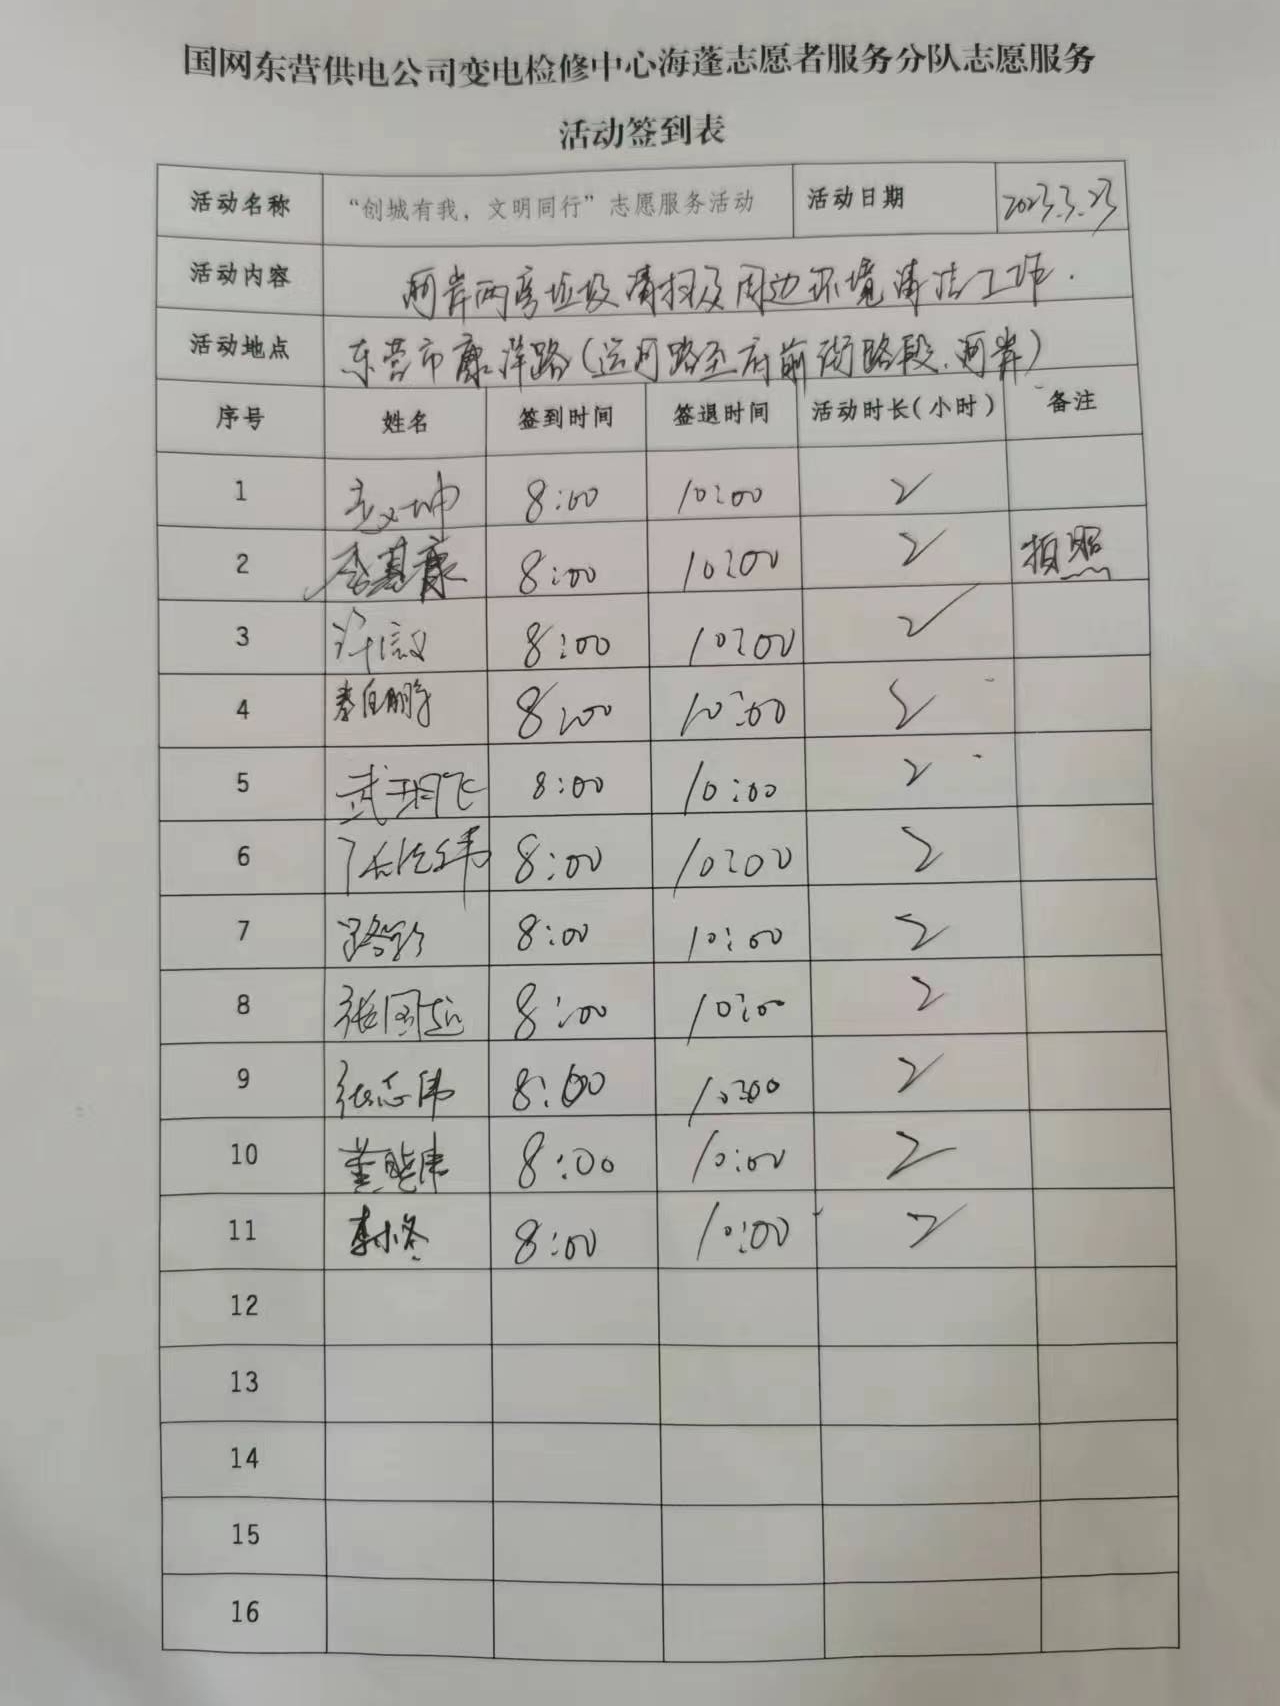 国网东营供电公司变电检修中心海蓬志愿者服务分队志愿服务
活动签到表
活动名称 “创城有我，文明同行”志愿服务活动 活动日期 2023.3.23
活动内容 河岸两旁垃圾清扫及周边环境清洁工作.
活动地点 东营市康洋路（运河路至府前街路段.河岸）
序号 姓名 签到时间 签退时间 活动时长(小时) 备注
1 赵义坤 8:00 10:00 2
2 李其康 8:00 10:00 2 拍照
3 许信义 8:00 10:00 2
4 秦自鹏 8:00 10:00 2
5 武玥飞 8:00 10:00 2
6 8:00 10:00 2
7 8:00 10:00 2
8 张国超 8:00 10:00 2
9 张志伟 8:00 10:00 2
10 董晓伟 8:00 10:00 2
11 李小冬 8:00 10:00 2
12
13
14
15
16